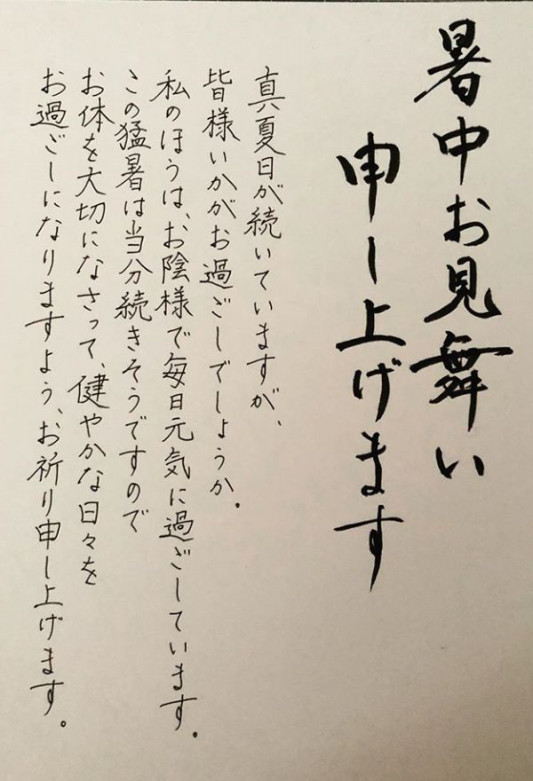 暑中お見舞い
申し上げます
真夏日が続いていますが、
皆様いかがお過ごしでしょうか。
私のほうは、お陰様で毎日元気に過ごしています。
この猛暑は当分続きそうですので
お体を大切になさって、健やかな日々を
お過ごしになりますよう、お祈り申し上げます。